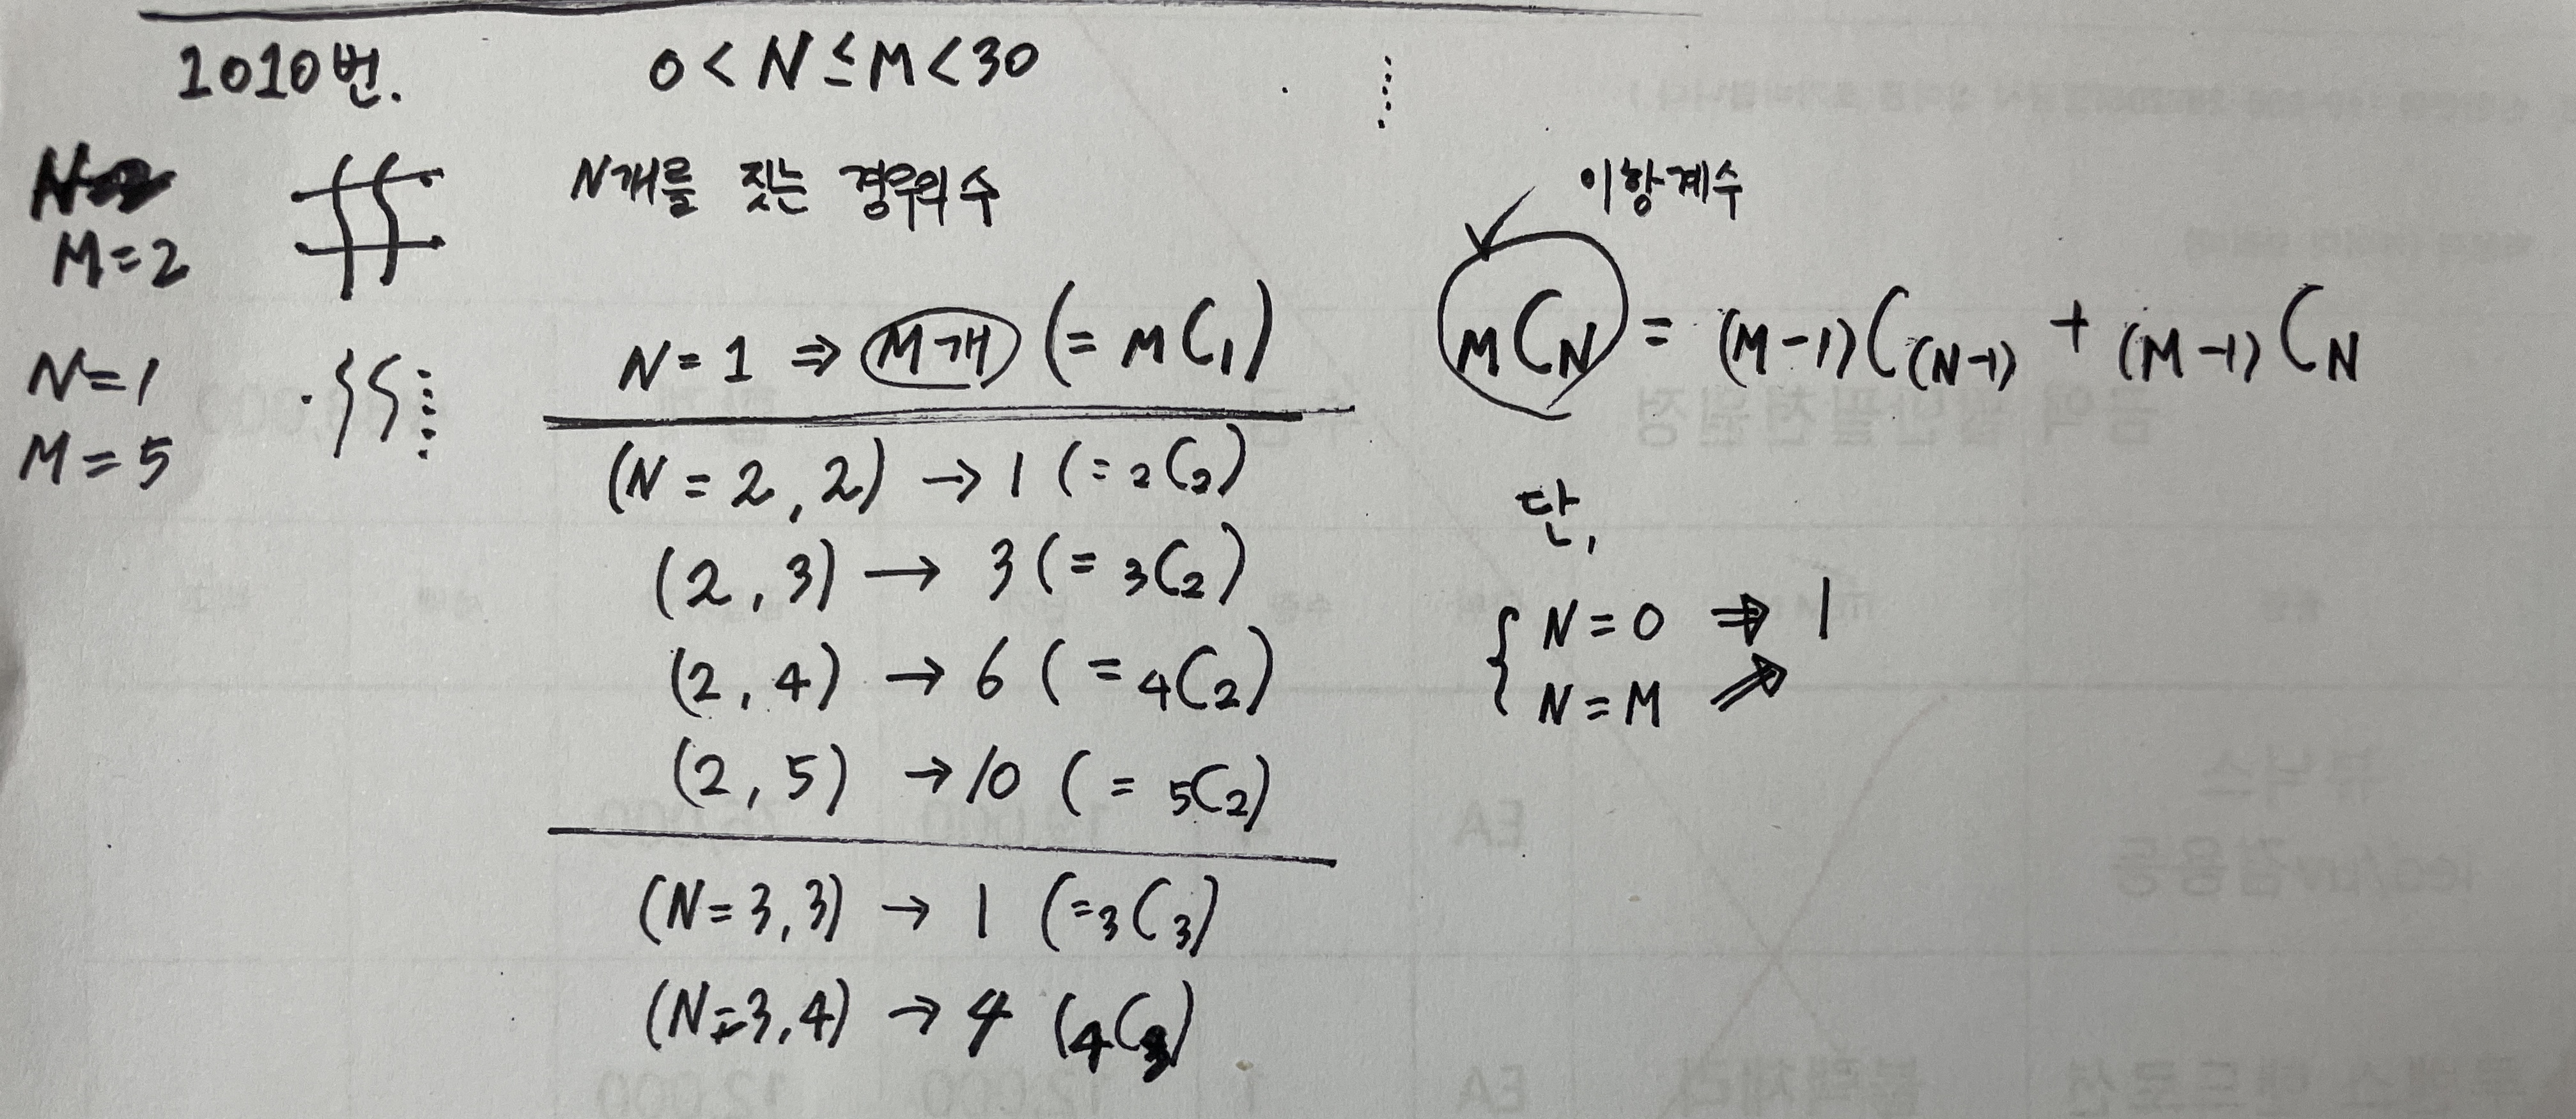 1010번.
0 < N ≤ M < 30
M=2
N=1
M=5
N개를 짓는 경우의 수
N=1 ⇒ M개 (= MC1)
(N=2,2) → 1 (=2C2)
(2,3) → 3 (= 3C2)
(2,4) → 6 (= 4C2)
(2,5) → 10 (= 5C2)
(N=3,3) → 1 (=3C3)
(N=3,4) → 4 (4C3)
이항계수
MCN = (M-1)C(N-1) + (M-1)CN
단,
N=0 ⇒ 1
N=M ⇒